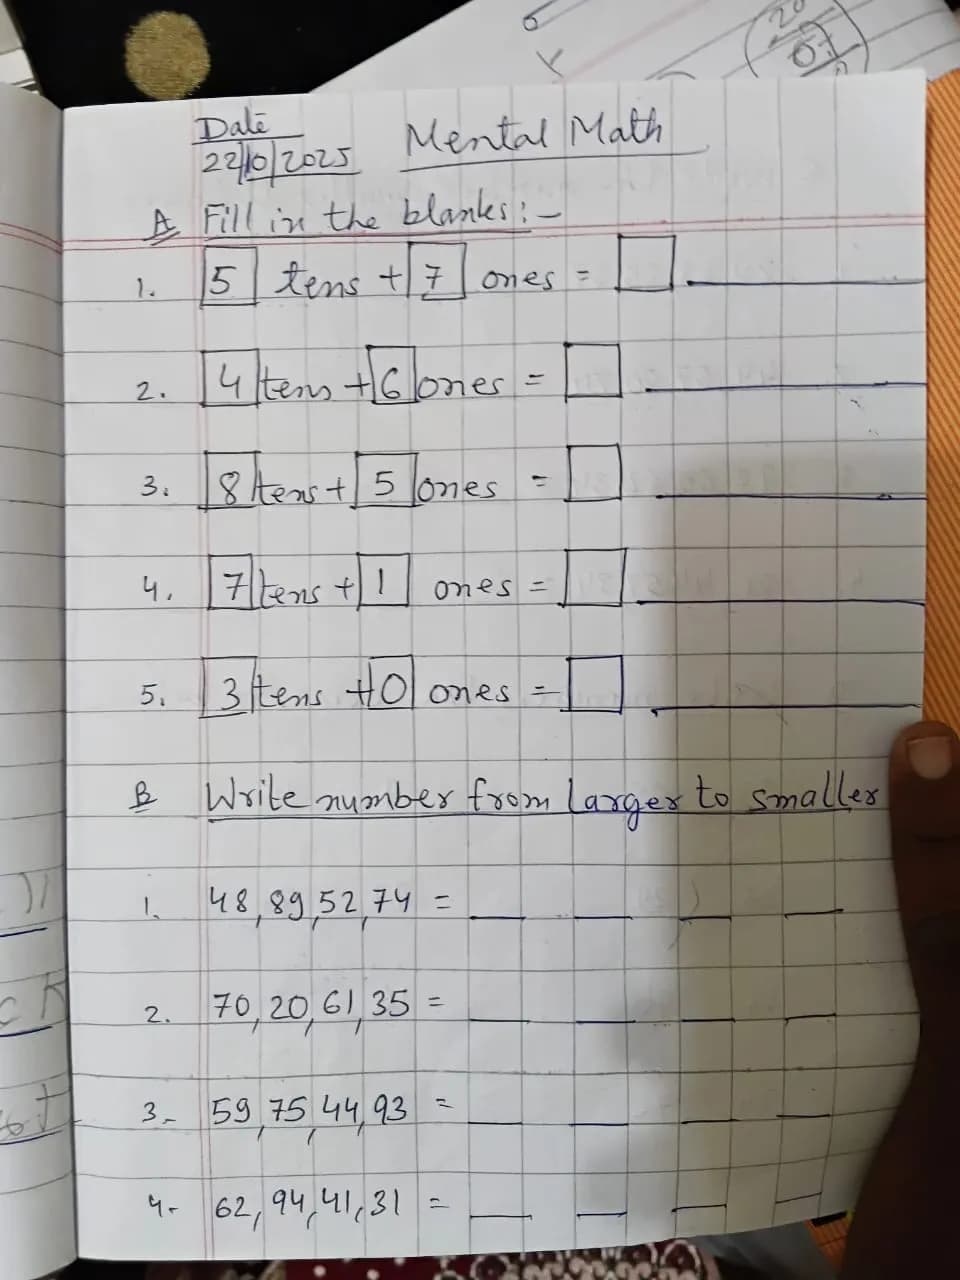 Date
22/10/2025 Mental Math
A Fill in the blanks:-
1. 5 tens + 7 ones =
2. 4 tens + 6 ones =
3. 8 tens + 5 ones =
4. 7 tens + 1 ones =
5. 3 tens + 0 ones =
B Write number from larger to smaller
1. 48, 89, 52, 74 =
2. 70, 20, 61, 35 =
3- 59, 75, 44, 93 =
4- 62, 94, 41, 31 =